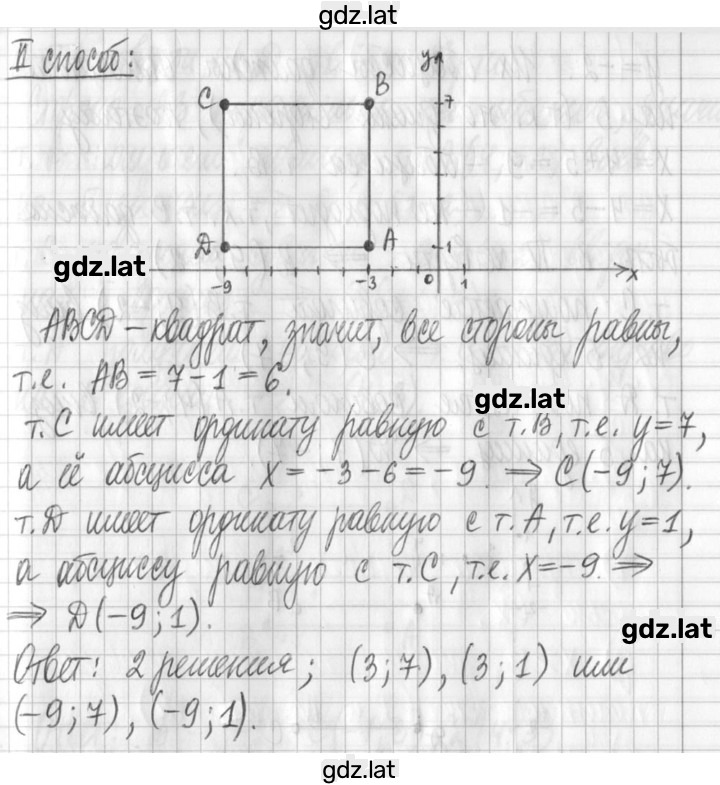 gdz.lat
II способ:
y
C
B
7
D
A
1
gdz.lat
-9
-3
0
1
x
ABCD – квадрат, значит, все стороны равны,
т.е. AB = 7 - 1 = 6.
gdz.lat
т. C имеет ординату равную с т. B, т.е. y = 7,
а её абсцисса x = -3 - 6 = -9. ⇒ C(-9; 7).
т. D имеет ординату равную с т. A, т.е. y = 1,
а абсциссу равную с т. C, т.е. x = -9. ⇒
⇒ D(-9; 1).
gdz.lat
Ответ: 2 решения; (3; 7), (3; 1) или
(-9; 7), (-9; 1).
gdz.lat